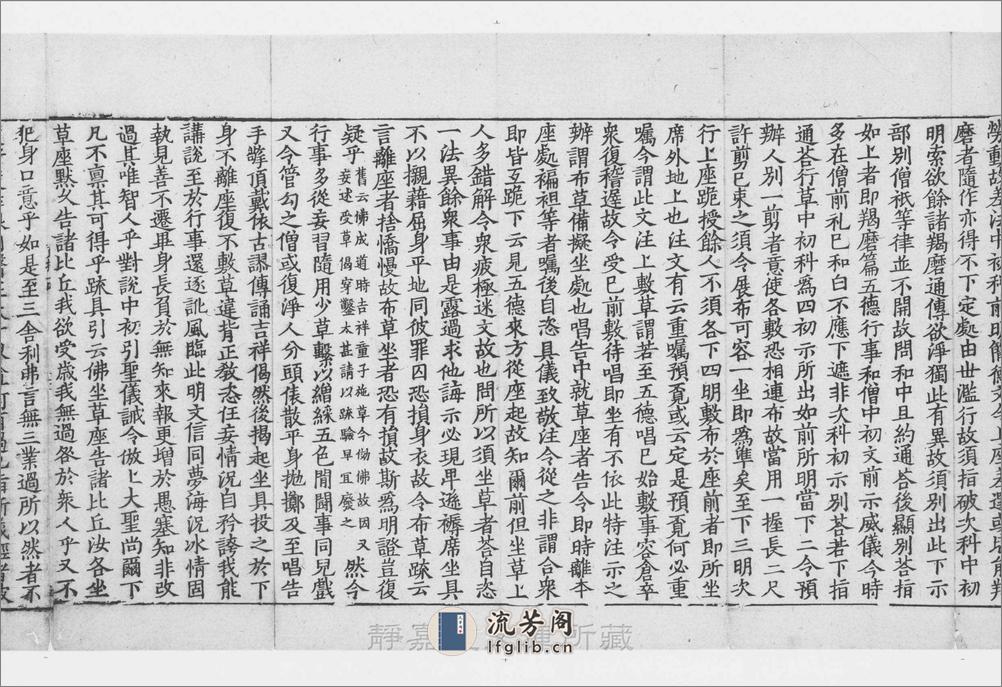 磨者隨作亦得不下定處由世濫行故須指破次科中初
明索欲餘諸羯磨通傳欲淨獨此有異故須別出此下示
部別僧祇等律並不開故問和中且約通荅後顯別荅指
如上者即羯磨篇五德行事和僧中初文前示威儀今時
多在僧前礼已和白不應下遮非次科初示別荅若下指
通荅行草中初科爲四初示所出如前所明當下二令預
辦人別一剪者意使各敷恐相連布故當用一握長二尺
許剪已束之須令展布可容一坐即爲準矣至下三明次
行上座跪授餘人不須各下四明敷布於座前者即所坐
席外地上也注文有云重囑預覔或云定是預覔何必重
囑今謂此文注上敷草謂若至五德唱已始敷事容倉卒
衆復稽遟故令受已前敷待唱即坐有不依此特注示之
辦謂布草備擬坐處也唱告中就草座者告令即時離本
座處褊袒等者囑後自恣具儀致敬注令從之非謂合衆
即皆互跪下云見五德來方從座起故知爾前但坐草上
人多錯解令衆疲極迷文故也問所以須坐草者荅自恣
一法異餘衆事由是露過求他誨示必現卑遜褥席坐具
不以襯藉屈身平地同彼罪囚恐損身衣故令布草疏云
言離座者捨憍慢故布草坐者恐有損故斯爲明證豈復
疑乎舊云佛成道時吉祥童子施草今慟佛故因又然今
妄述受草偈穿鑿太甚請以疏驗早宜廢之
行事多從妄習隨用少草繫以繒綵五色閒鬪事同兒戲
又令管勾之僧或復淨人分頭俵散平身抛擲及至唱告
手擎頂戴依古謬傳誦吉祥偈然後揭起坐具投之於下
身不離座復不敷草違背正敎恣任妄情況自矜誇我能
講說至於行事還逐訛風臨此明文信同夢海況冰情固
執見善不遷畢身長負於無知來報更增於愚塞知非改
過其唯智人乎對説中初引聖儀誡令倣上大聖尚爾下
凡不禀其可得乎疏具引云佛坐草座告諸比丘汝各坐
草座默久告諸比丘我欲受歳我無過咎於衆人乎又不
犯身口意乎如是至三舍利弗言無三業過所以然者不
流芳阁
lfglib.cn